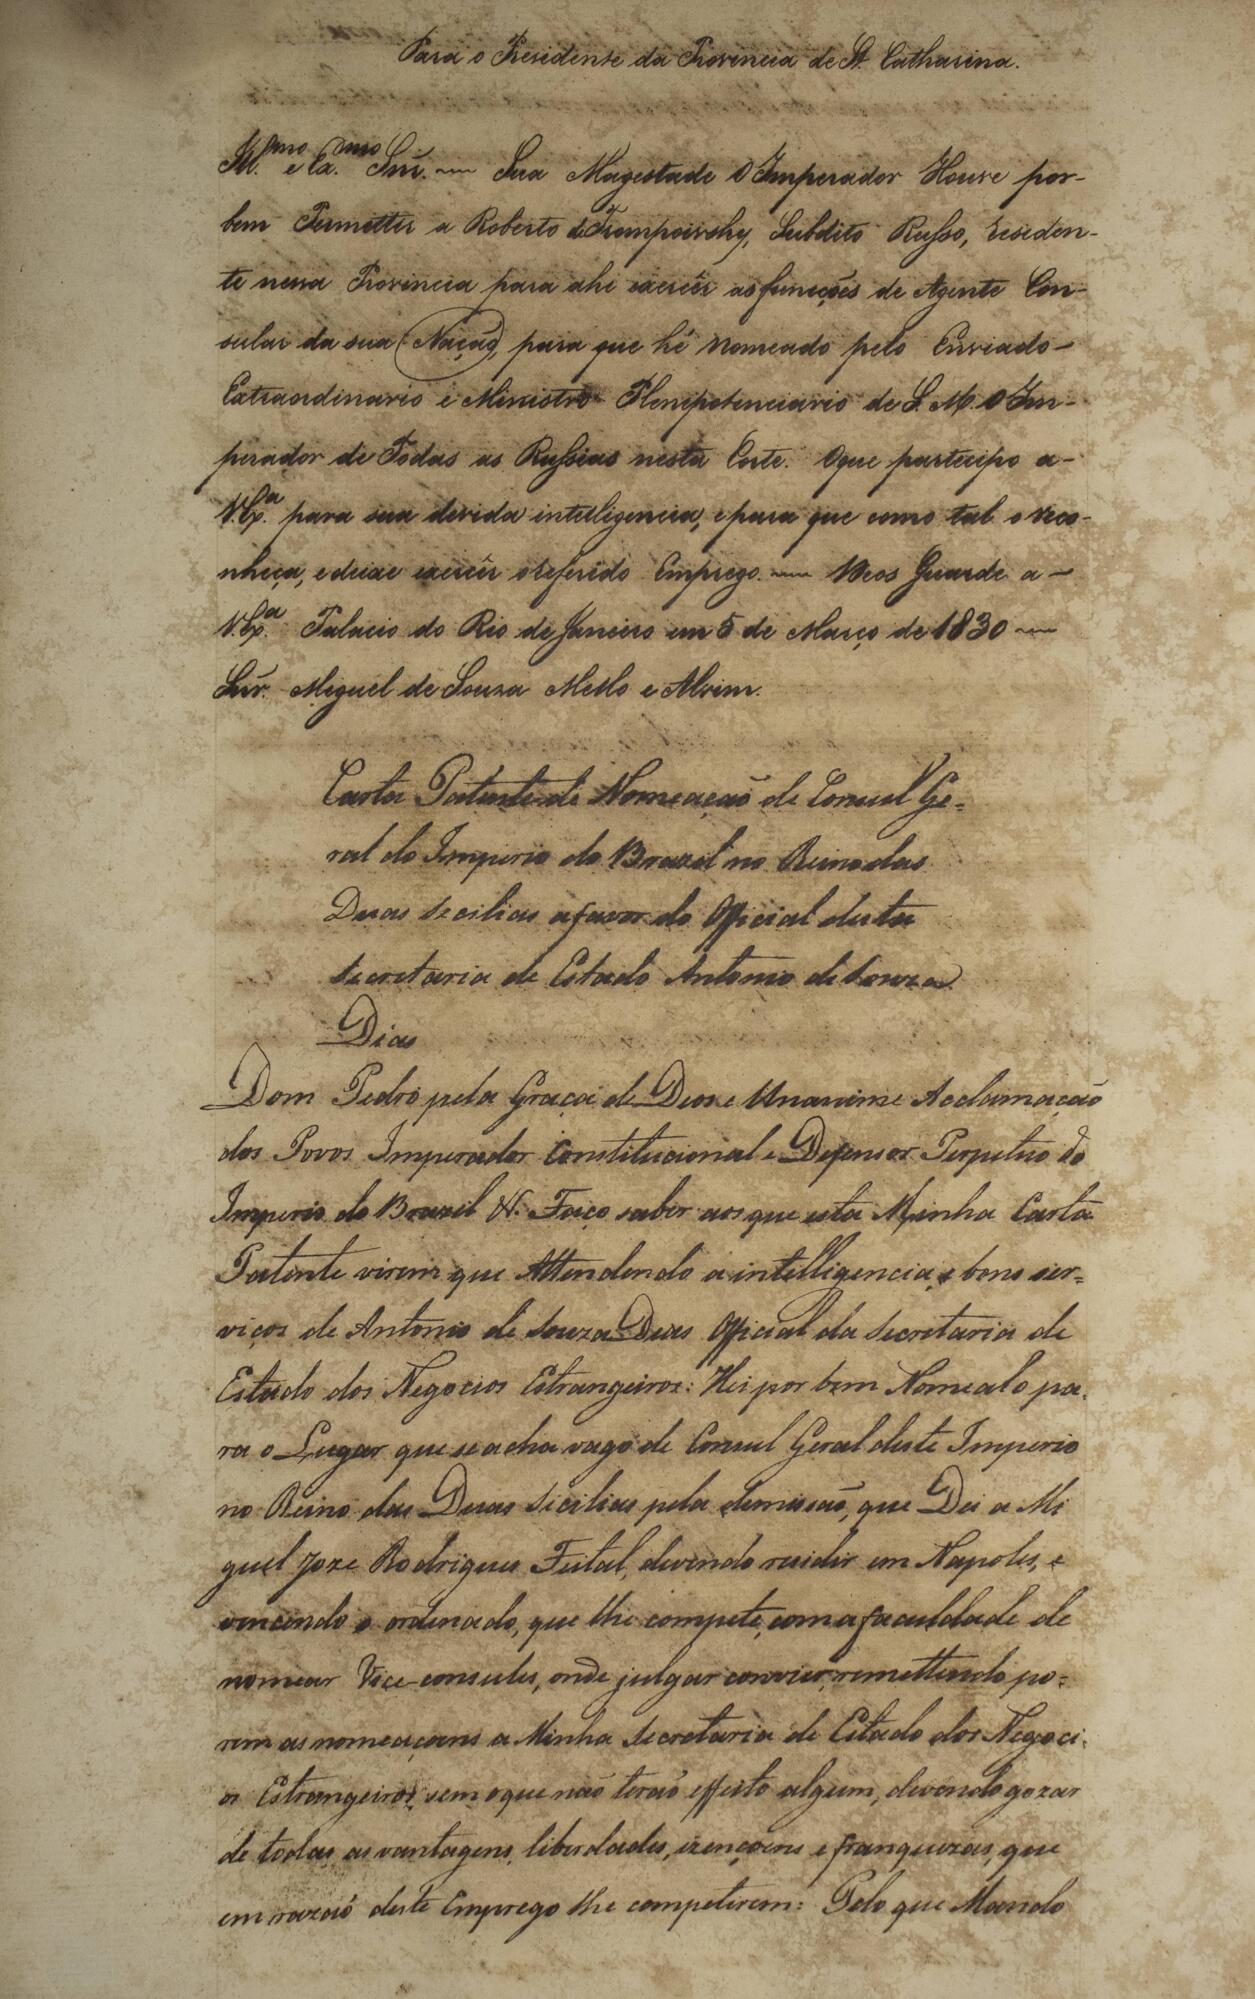 Para o Presidente da Provincia de S.ta Catharina.
Ill.mo e Ex.mo Snr. — Sua Magestade O Imperador Houve por-
bem Permettir a Roberto de Trompoivsky, Subdito Russo, residen-
te nessa Provincia para ahi exercêr as funcções de Agente Con-
sular da sua Nação, para que hé nomeado pelo Enviado-
Extraordinario e Ministro Plenipotenciario de S. M. O Im-
perador de Todas as Russias nesta Corte. O que participo a-
V. Ex.a para sua devida intelligencia, e para que como tal o reco-
nheça, e deixe exercêr o referido Emprego. — Deos Guarde a-
V. Ex.a Palacio do Rio de Janeiro em 5 de Março de 1830 —
Snr. Miguel de Souza Mello e Alvim.
Carta Patente de Nomeação de Consul Ge-
ral do Imperio do Brazil no Reino das
Duas Secilias a favor do Official desta
Secretaria de Estado Antonio de Souza
Dias
Dom Pedro pela Graça de Deos e Unanime Acclamação
dos Povos Imperador Constitucional e Defensor Perpetuo do
Imperio do Brazil &. Faço saber aos que esta Minha Carta
Patente virem que Attendendo a intelligencia, e bons ser-
viços de Antonio de Souza Dias Official da Secretaria de
Estado dos Negocios Estrangeiros: Hei por bem Nomealo pa-
ra o Lugar que se acha vago de Consul Geral deste Imperio
no Reino das Duas Sicilias pela demissão, que Dei a Mi
guel Joze Rodrigues Feital, devendo residir em Napoles, e
vencendo o ordenado, que lhe compete, com a faculdade de
nomear Vice-consules, onde julgar convier, remettendo po-
rem as nomeaçoens a Minha Secretaria de Estado dos Negoci-
os Estrangeiros, sem o que não terão effeito algum, devendo gozar
de todas as vantagens, liberdades, izençoens e franquezas, que
em razaõ deste Emprego lhe competirem: Pelo que Mando